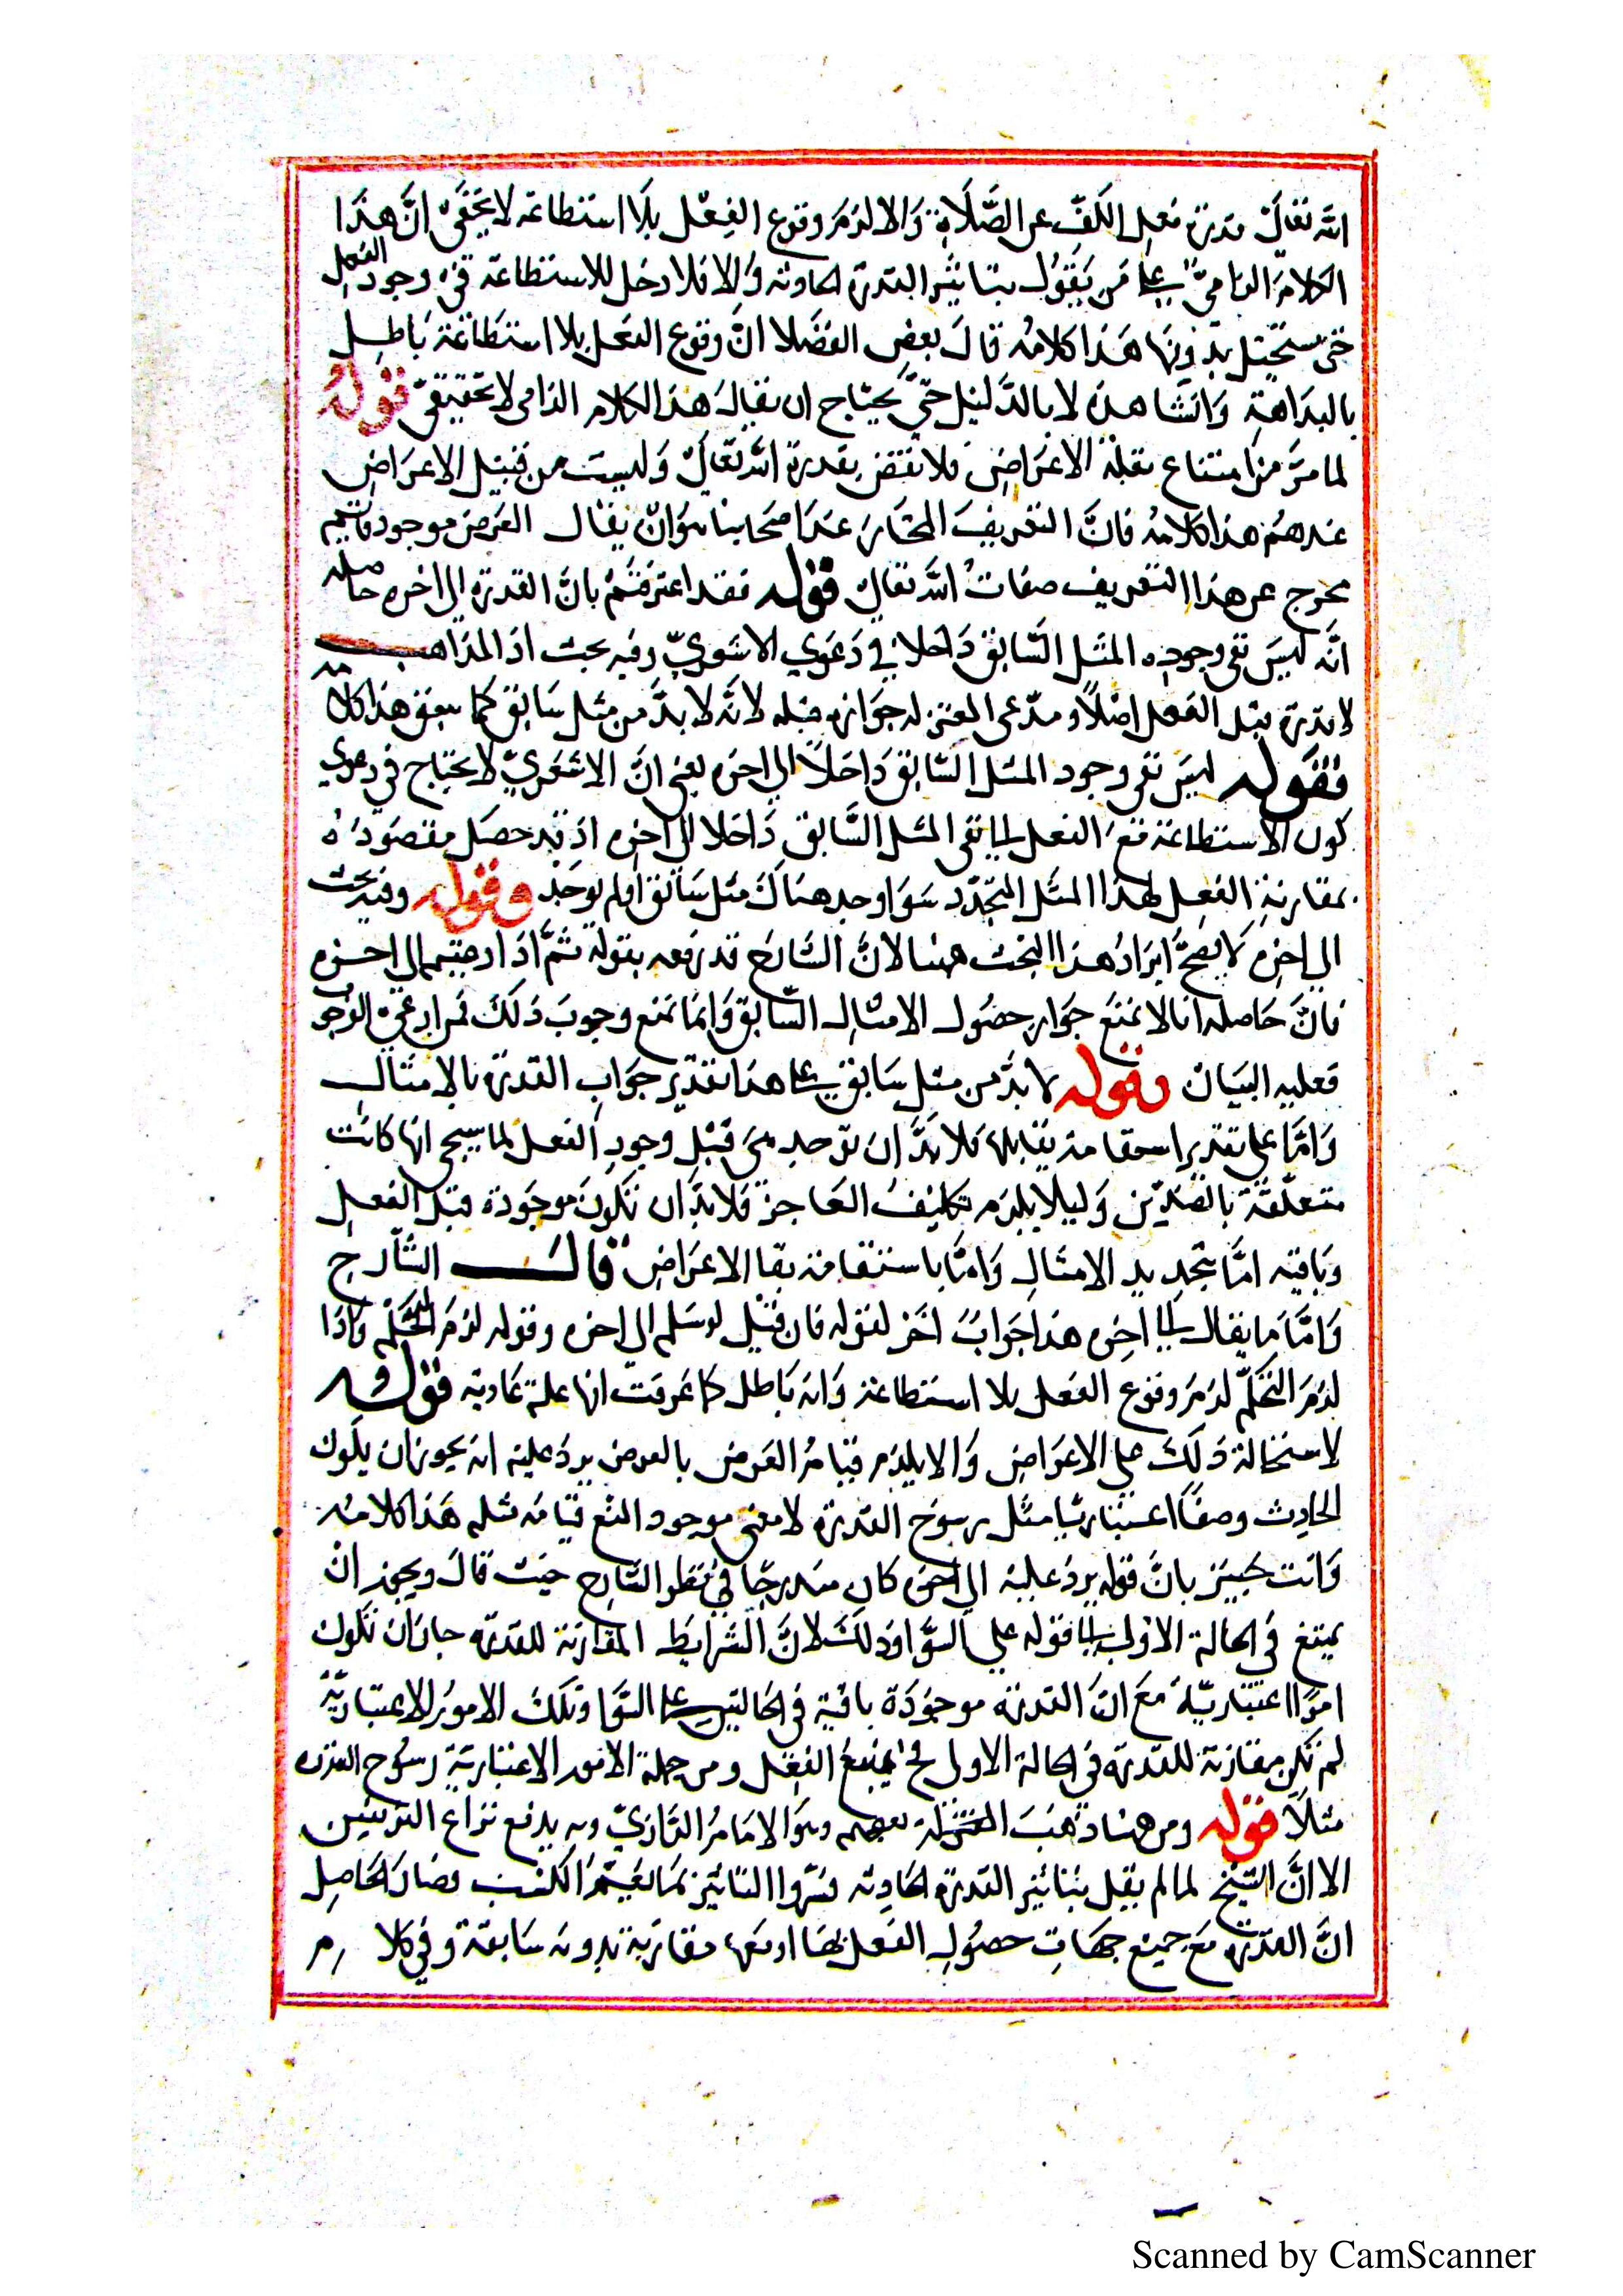 الله تعالى قدرة فعل الكف عن الصلاة والا لزم وقوع الفعل بلا استطاعة لا يخفى ان هذا
الكلام الزامى على من يقول بتاثير القدرة الحادثة والا فلا دخل للاستطاعة فى وجود الفعل
حتى يستحيل بدونها هذا كلامه قال بعض الفضلا ان وقوع الفعل بلا استطاعة باطل
بالبداهة والمشاهدة لا بالدليل حتى يحتاج ان يقال هذا الكلام الزامى لا تحقيقى قوله
لما مر من امتناع بقاء الاعراض فلا نقض بقدرة الله تعالى وليست من قبيل الاعراض
عندهم هذا كلامه فان التعريف المختار عند اصحابنا هو ان يقال العرض موجود قائم
يخرج عن هذا التعريف صفات الله تعالى قوله فقد اعترفتم بان القدرة الى اخره حاصله
انه ليس نفى وجود المثل السابق داخلا في دعوي الاشعري وفيه بحث اذ المذاهب
لا قدرة قبل الفعل اصلا ومدعى المعتزله جوازه قبله لانه لا بد من مثل سابق كما سبق هذا كلامه
فقوله ليس نفى وجود المثل السابق داخلا الي اخره يعنى ان الاشعري لا يحتاج في دعوي
كون الاستطاعة مع الفعل الى نفى المثل السابق داخلا الى اخره اذ قد حصل مقصوده
بمقارنة الفعل لهذا المثل المتجدد سوا وجد هناك مثل سابق او لم يوجد وقوله وفيه بحث
الي اخره لا يصح ايراد هذا البحث هنا لان الشارح قد رفعه بقوله ثم اذا ادعيتم الي اخره
فان حاصله انا لا نمنع جواز حصول الامثال السابق وانما نمنع وجوب ذلك فمن ادعى الوجوب
فعليه البيان وقوله لا بد من مثل سابق على هذا تقدير جواب القدرة بالامثال
واما على تقدير بقايها فلا بد ان توجد هى قبل وجود الفعل لما سيجى انها كانت
متعلقة بالضدين وليلا يلزم تكليف العاجز فلا بد ان تكون موجودة قبل الفعل
وباقية اما بتجديد الامثال واما باستقامة بقا الاعراض قال الشارح
واما ما يقال الى اخره هذا جواب اخر لقوله فان قيل لو سلم الي اخره وقوله لزم التحكم واذا
لزم التحكم لزم وقوع الفعل بلا استطاعة وانه باطل كما عرفت انها علة عادية قوله
لاستحالة ذلك على الاعراض والا يلزم قيام العرض بالعرض يرد عليه انه يجوز ان يكون
الحادث وصفا اعتباريا مثل رسوخ القدرة لا معنى موجود امتنع قيامه بمثله هذا كلامه
وانت خبير بان قوله يرد عليه الى اخره كان مندرجا في نظر الشارح حيث قال ويجوز ان
يمتنع فى الحالة الاولى الى قوله على السوا وذلك لان الشرايط المقارنة للقدرة جاز ان تكون
امورا اعتبارية مع ان القدرة موجودة باقية فى الحالتين على السوا وتلك الامور الاعتبارية
لم تكن مقارنة للقدرة فى الحالة الاولى فح يمتنع الفعل ومن جملة الامور الاعتبارية رسوخ القدرة
مثلا قوله ومن هنا ذهب بعضهم وهو الامام الرازي وبه يدفع نزاع الفريقين
الا ان الشيخ لما لم يقل بتاثير القدرة الحادثة فسروا التاثير بما يعم الكسب فصار الحاصل
ان القدرة مع جميع جهات حصول الفعل بها او معها مقارنة بدونه سابقة وفي كلام
Scanned by CamScanner